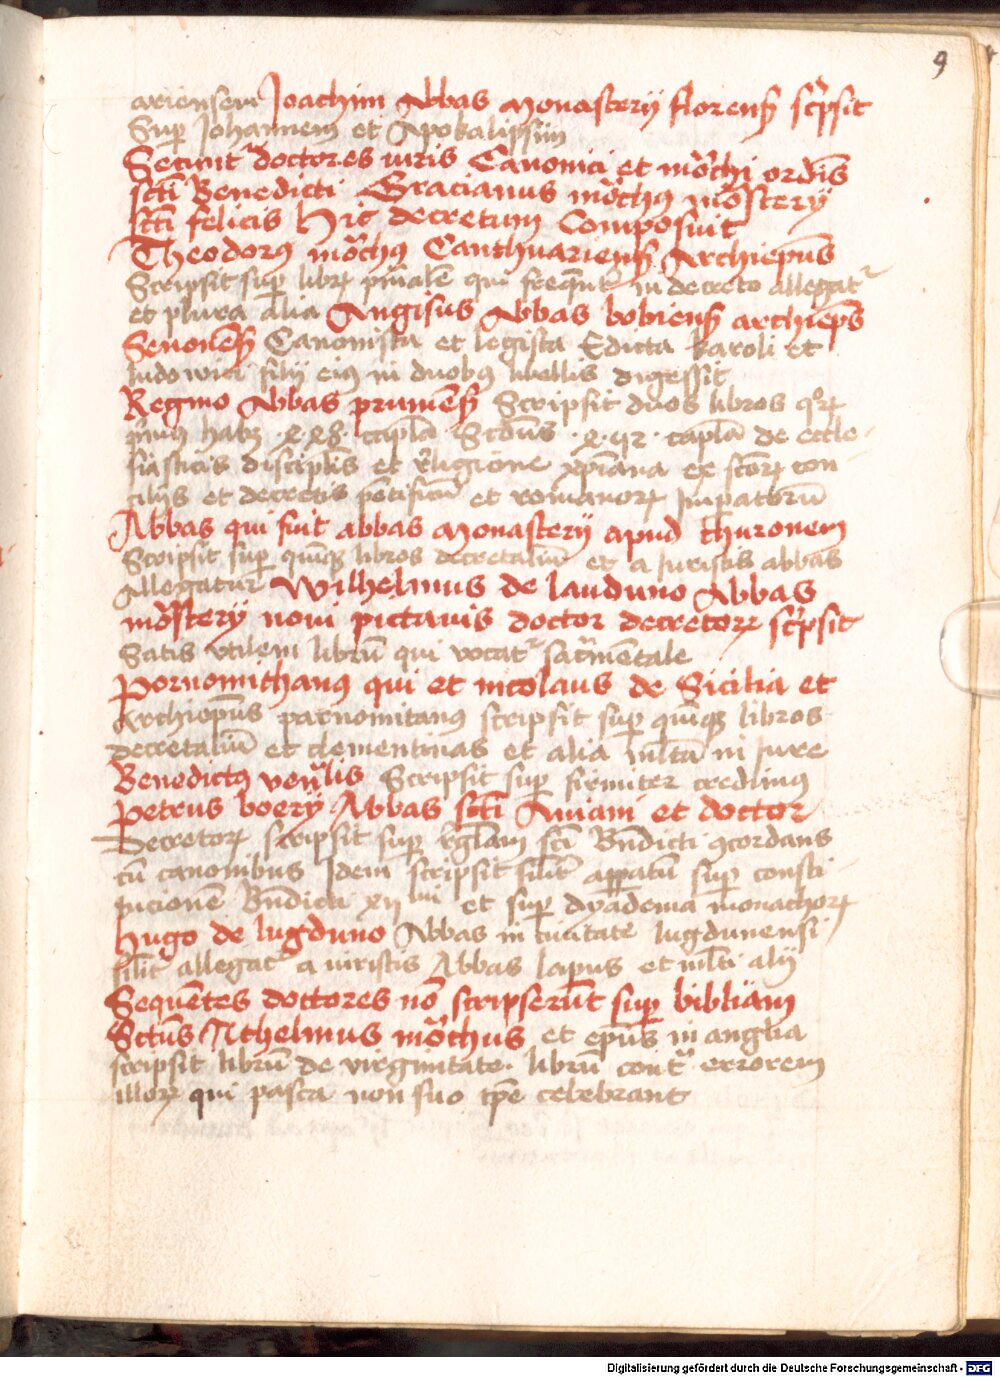 9
ariensem Joachim Abbas monasterij florenß scͥpsit
Suꝑ Johannem et Apokalipsim
Secunt̃ doctores iuris Canonici et mo̾chi ordīs
scti Benedicti Gracianus mo̾chꝰ mo̾sterij
scti felicis hic decretum Composuit
Theodorꝰ mo̾chꝰ Canthuarienß Archiepūs
Scripsit suꝑ libꝝ qui in decreto allegat̾
et plura alia Angisus Abbas bobienß archiepūs
Senonenß Canonista et legista Edicta karoli et
ludowici filij eiꝰ in duobꝰ libellis digessit
Regino Abbas prumēß Scripsit duos libros qͦꝝ
capl̄a Scd̄us capl̄a de eccle-
siasticis disciplīs et religione xp̄iana ex con-
cilijs et decretis pōtificū et romanoꝝ Impatorū
Abbas qui fuit abbas monasterij apud thuronem
Scripsit suꝑ quīqꝫ libros decretaliū et a Juristis abbas
Allegatur Wilhelmus de lauduno Abbas
mo̾sterij noui pictauis doctor decretoꝝ scͥpsit
Satis vtilem librū qui vocat̾ sac̾mētale
Pornomithanꝰ qui et nicolaus de Sicilia et
Archiepūs parnomitanꝰ scripsit suꝑ quīqꝫ libros
decretaliū et clementinas et alia ml̄ta in Jure
Benedictꝰ Scripsit suꝑ firmiter credimꝰ
Petrus boerij Abbas scti Aniani et doctor
Decretoꝝ scripsit suꝑ regl̄am scī Bn̄dicti ꝯcordans
cū canonibus Idem scripsit silit̾ apparatū suꝑ consti-
tucionē Bn̄dicti xij et suꝑ dyadema monachoꝝ
Hugo de lugduno Abbas in ciuitate lugdunensi
silit̾ allegat̾ a iuristis Abbas lapus et ml̄ti alij
Sequētes doctores nō scripserūt suꝑ bibliam
Sctūs Athelmus mo̾chus et epūs in anglia
scripsit librū de virginitate librū contͣ errorem
illoꝝ qui pasca non suo tp̄e celebrant
Digitalisierung gefördert durch die Deutsche Forschungsgemeinschaft - DFG